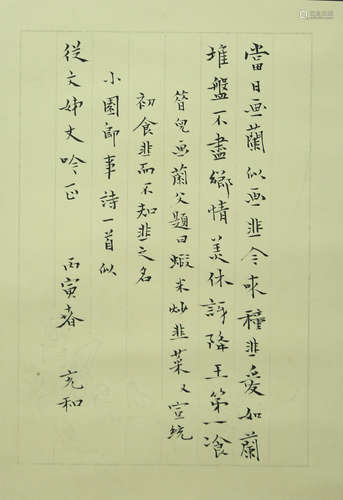 當日画蘭似画韭今来種韭愛如蘭
堆盤不盡鄉情美休訝降王第一飡
曾畫蘭父題曰蝦米炒韭菜又宣統
初食韭而不知韭之名
小園即事詩一首似
從文姊丈吟正 丙寅春 充和